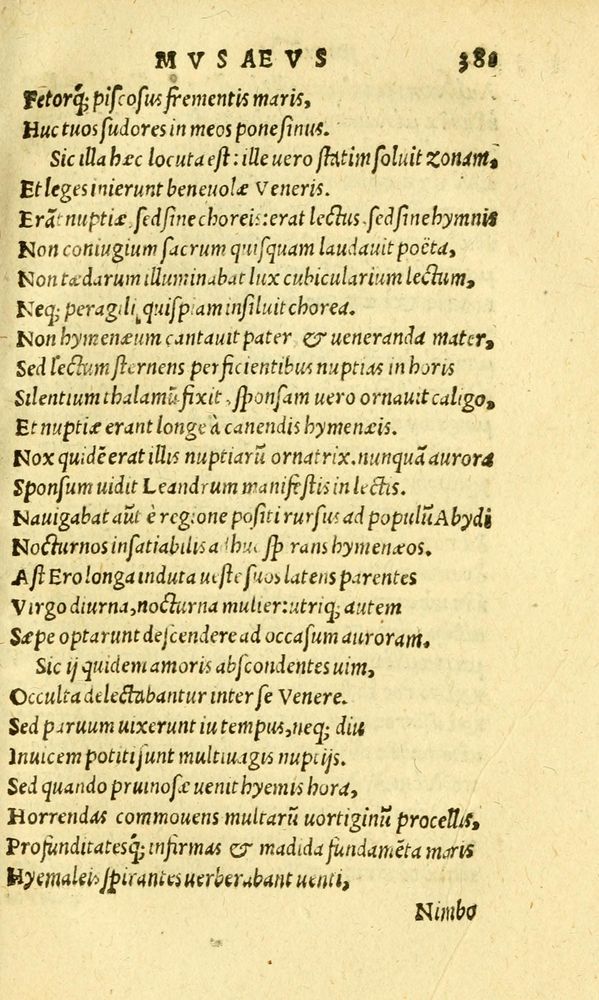 MVSAEVS 380
Fetorq; piscosus frementis maris,
Huc tuos sudores in meos pone sinus.
Sic illa hæc locuta est: ille uero statim soluit zonam,
Et leges inierunt beneuolæ Veneris.
Erāt nuptiæ, sed sine choreis: erat lectus, sed sine hymnis
Non coniugium sacrum quisquam laudauit poëta,
Non tædarum illuminabat lux cubicularium lectum,
Neq; peragili quispiam insiluit chorea.
Non hymenæum cantauit pater & ueneranda mater,
Sed lectum sternens perficientibus nuptias in horis
Silentium thalamū fixit, sponsam uero ornauit caligo,
Et nuptiæ erant longe à canendis hymenæis.
Nox quidē erat illis nuptiarū ornatrix. nunquā aurora
Sponsum uidit Leandrum manifestis in lectis.
Nauigabat aūt è regione positi rursus ad populū Abydi
Nocturnos insatiabilis adhuc sp rans hymenæos.
Ast Ero longa induta ueste suos latens parentes
Virgo diurna, nocturna mulier: utriq; autem
Sæpe optarunt descendere ad occasum auroram.
Sic ij quidem amoris abscondentes uim,
Occulta delectabantur inter se Venere.
Sed paruum uixerunt iu tempus, neq; diu
Inuicem potiti sunt multiuagis nuptijs.
Sed quando pruinosæ uenit hyemis hora,
Horrendas commouens multarū uortiginū procellis,
Profunditatesq; infirmas & madida fundamēta maris
Hyemaleis spirantes uerberabant uenti,
Nimbo